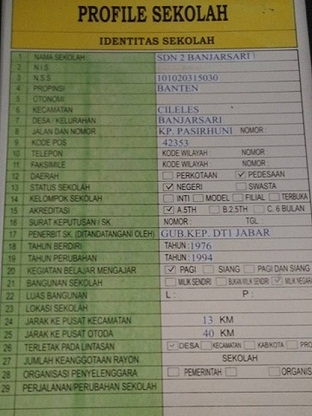 PROFILE SEKOLAH
IDENTITAS SEKOLAH
1 NAMA SEKOLAH SDN 2 BANJARSARI
2 N.I.S
3 N.S.S 101020315030
4 PROPINSI BANTEN
5 OTONOMI
6 KECAMATAN CILELES
7 DESA / KELURAHAN BANJARSARI
8 JALAN DAN NOMOR KP. PASIRHUNI NOMOR
9 KODE POS 42353
10 TELEPON KODE WILAYAH NOMOR
11 FAKSIMILE KODE WILAYAH NOMOR
12 DAERAH PERKOTAAN PEDESAAN
13 STATUS SEKOLAH NEGERI SWASTA
14 KELOMPOK SEKOLAH INTI MODEL FILIAL TERBUKA
15 AKREDITASI A.5TH B.2.5TH C. 6 BULAN
16 SURAT KEPUTUSAN / SK NOMOR : TGL
17 PENERBIT SK. (DITANDATANGANI OLEH) GUB.KEP. DT1 JABAR
18 TAHUN BERDIRI TAHUN : 1976
19 TAHUN PERUBAHAN TAHUN : 1994
20 KEGIATAN BELAJAR MENGAJAR PAGI SIANG PAGI DAN SIANG
21 BANGUNAN SEKOLAH MILIK SENDIRI BUKAN MILIK SENDIRI MILIK NEGARA
22 LUAS BANGUNAN L : P :
23 LOKASI SEKOLAH
24 JARAK KE PUSAT KECAMATAN 13 KM
25 JARAK KE PUSAT OTODA 40 KM
26 TERLETAK PADA LINTASAN DESA KECAMATAN KAB/KOTA PRO
27 JUMLAH KEANGGOTAAN RAYON SEKOLAH
28 ORGANISASI PENYELENGGARA PEMERINTAH ORGANIS
29 PERJALANAN/PERUBAHAN SEKOLAH